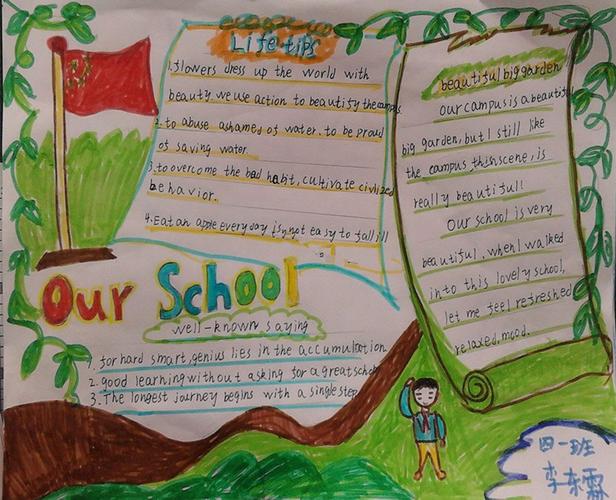 Life tips
1.flowers dress up the world with
beauty we use action to beautify the campus
2.to abuse ashamed of water. to be proud
of saving water.
3.to overcome the bad habit, cultivate civilized
behavior.
4.Eat an apple every day is not easy to fall ill
beautiful big garden
our campus is a beautiful
big garden, but I still like
the campus, this scene, is
really beautiful!
Our school is very
beautiful, when I walked
into this lovely school,
let me feel refreshed
relaxed mood.
Our School
well-known saying
1. for hard smart, genius lies in the accumulation
2. good learning without asking for a great school
3. The longest journey begins with a single step
四一班
李东霖